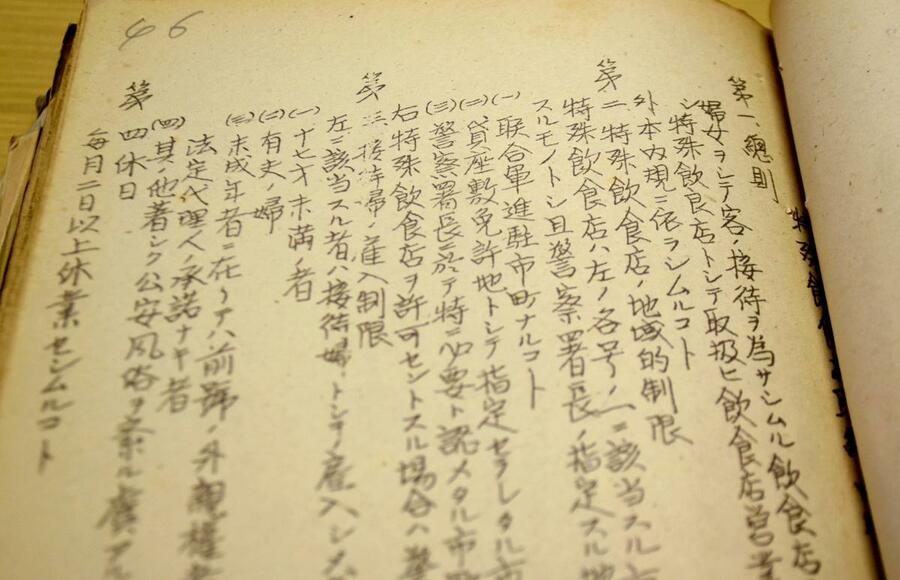 46
特殊
第一、總則
婦女ヲシテ客ノ接待ヲ為サシムル飲食店
シ特殊飲食店トシテ取扱ヒ飲食店営業
外本内規ニ依ラシムルコト
第二 特殊飲食店ノ地域的制限
特殊飲食店ハ左ノ各号ノ一ニ該当スル
スルモノトシ且警察署長ノ指定スル地
(一) 联合軍進駐市町ナルコト
(二) 貸座敷免許地トシテ指定セラレタル市
(三) 警察署長ニ於テ特ニ必要ト認メタル市
右特殊飲食店ヲ許可セントスル場合ハ
第三、接待婦ノ雇入制限
左ニ該当スル者ハ接待婦トシテノ雇入シメ
(一) 十七才未満ノ者
(二) 有夫ノ婦
(三) 未成年者ニ在リテハ前號ノ外親権者
法定代理人ノ承諾ナキ者
(四) 其ノ他著シク公安風俗ヲ紊ル虞アル
第四 休日
毎月二日以上休業セシムルコト